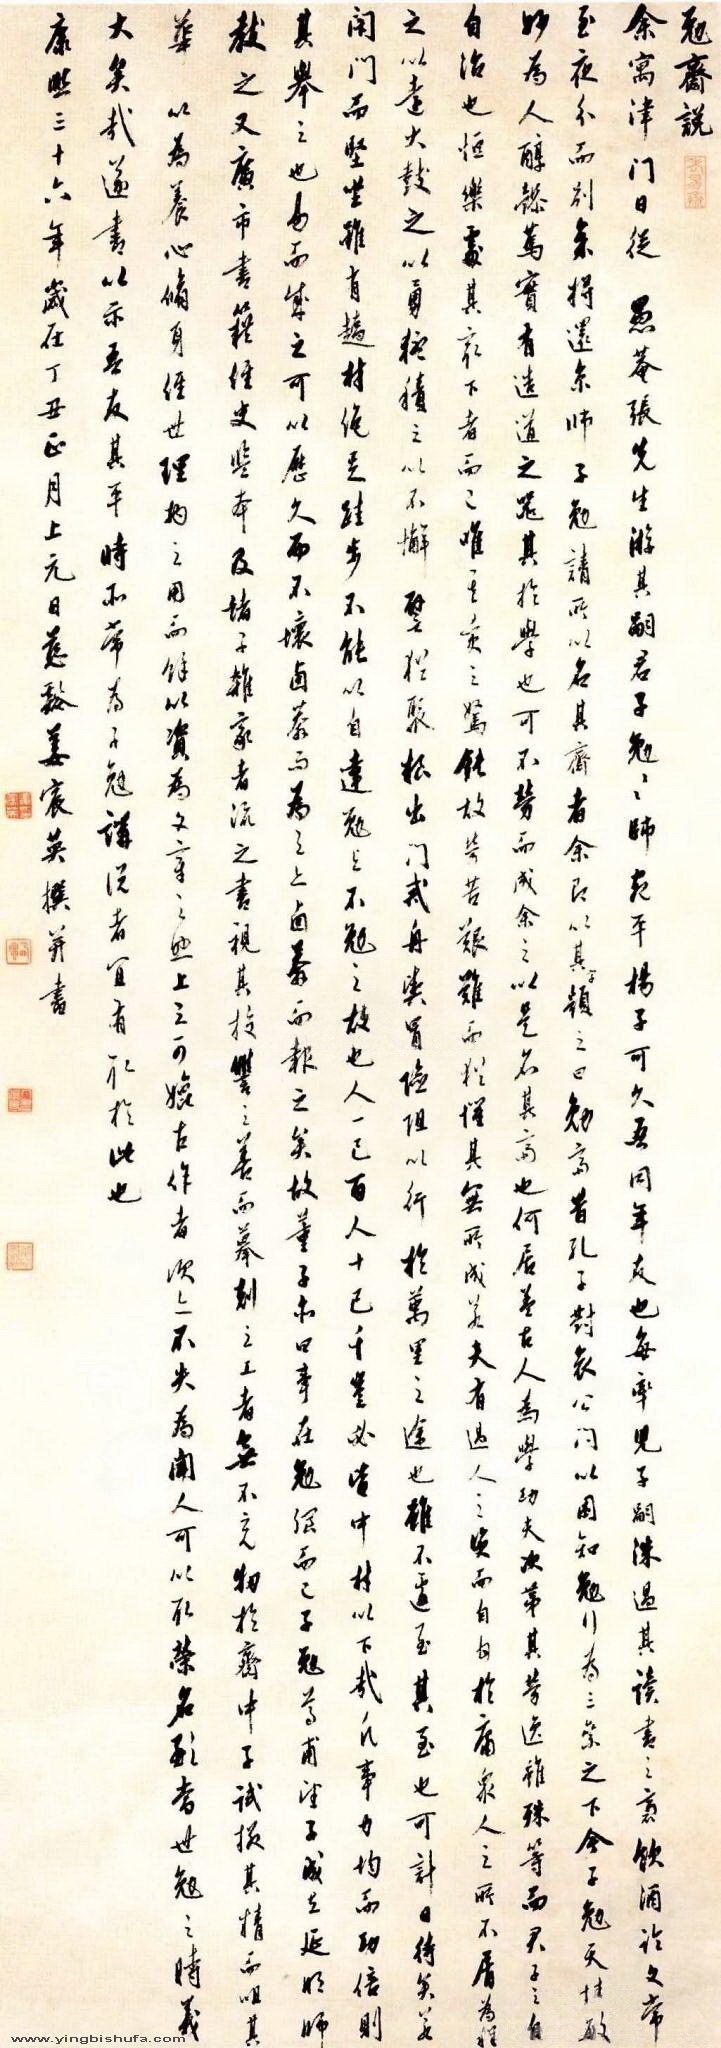 勉齋說
余寓津门日從 愚菴張先生游其嗣君子勉之師宛平楊子可久吾同年友也每率見子嗣洙過其讀書之裏飲酒論文常
至夜分而別余將還京師子勉請所以名其齋者余即以其字題之曰勉齋昔孔子對哀公问以困知勉行為三等之下今子勉天性敏
妙為人醇謹篤實有造道之器其於學也可不勞而成余之以是名其齋也何居盖古人為學功夫次第其勞逸雖殊等而君子之自
自治也恒樂處其最下者而已唯其資之駑鈍故苦艱難而猶懼其無所成若夫有過人之資而自力於庸衆人之所不屑為程
之以遠大鼓之以勇猛積之以不懈 譬猶聚粮出门戒舟楫冒險阻以行於萬里之途也雖不遽至其至也可計日待矣若
閉門而堅坐雖有趫材絕足跬步不能以自達勉與不勉之故也人一己百人十己千豈必皆中材以下哉凡事力均而功倍則
其舉之也易而成之可以歷久而不壞鹵莽而為之亦鹵莽而報之矣故董子亦曰事在勉强而已子勉尊甫望子成立延明師
教之又廣市書籍經史監本及諸子雜家者流之書視其校讐之善而摹刻之工者無不充牣於齋中子試掇其精而咀其
華 以為養心脩身經世理物之用而餘以資為文章之典上之可媲古作者次亦不失為聞人可以取榮名顯當世勉之時義
大矣哉遂書以示吾友其平時所常為子勉講说者宜有取於此也
康熙三十六年歲在丁丑正月上元日慈谿姜宸英撰并書
www.yingbishufa.com